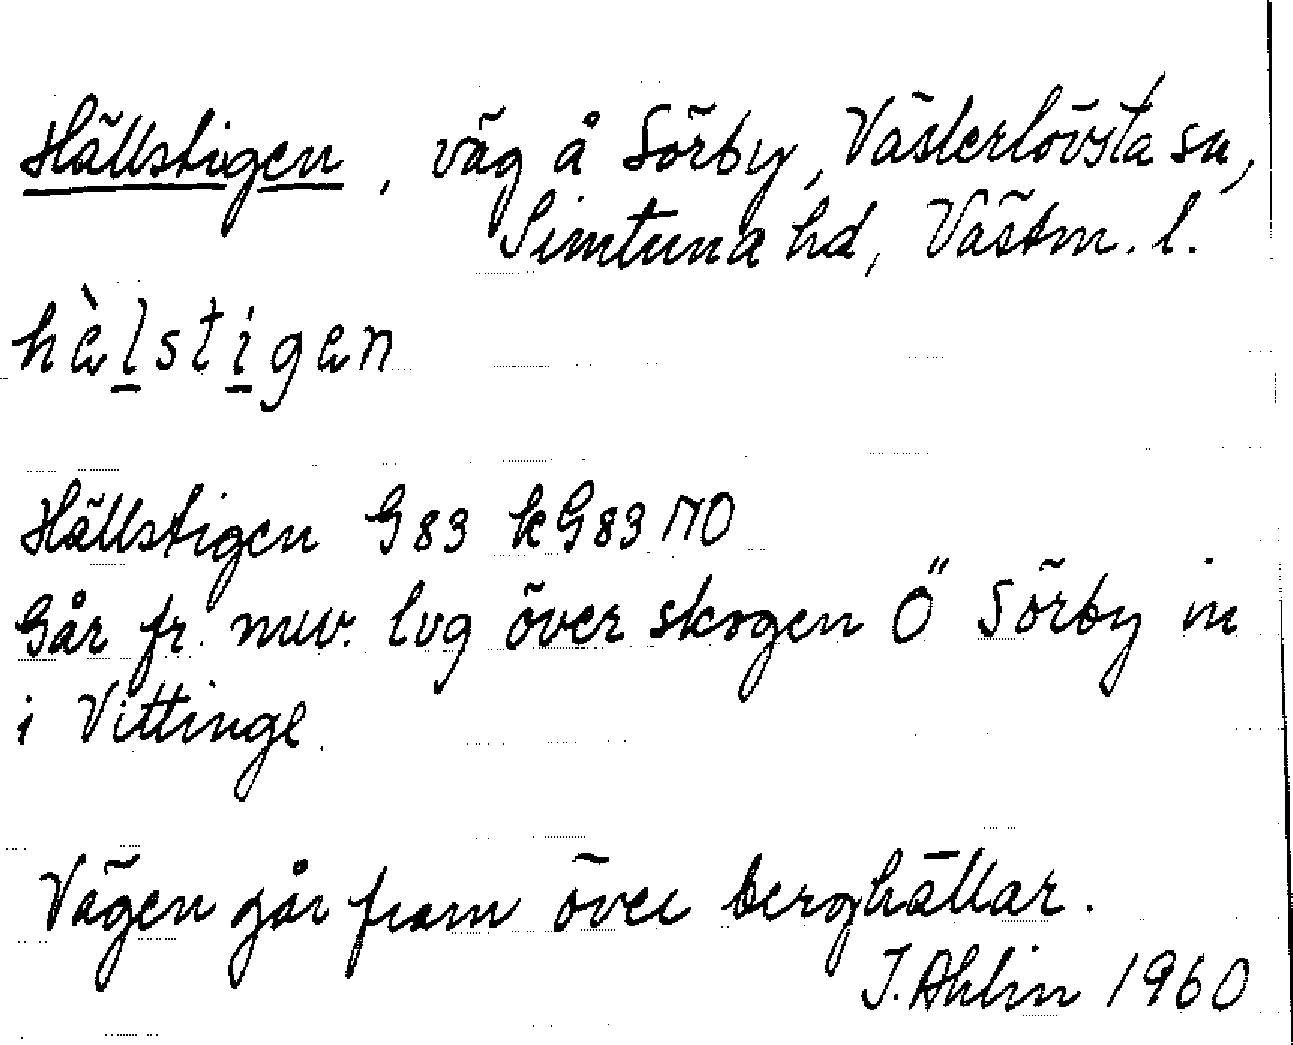 Hällstigen, väg å Sörby, Västerlövsta sn,
Simtuna hd, Västm. l.
hè̢lstigen
Hällstigen G83 kG83 NO
Går fr. nuv. lvg över skogen Ö Sörby in
i Vittinge.
Vägen går fram över berghällar.
I. Ahlin 1960